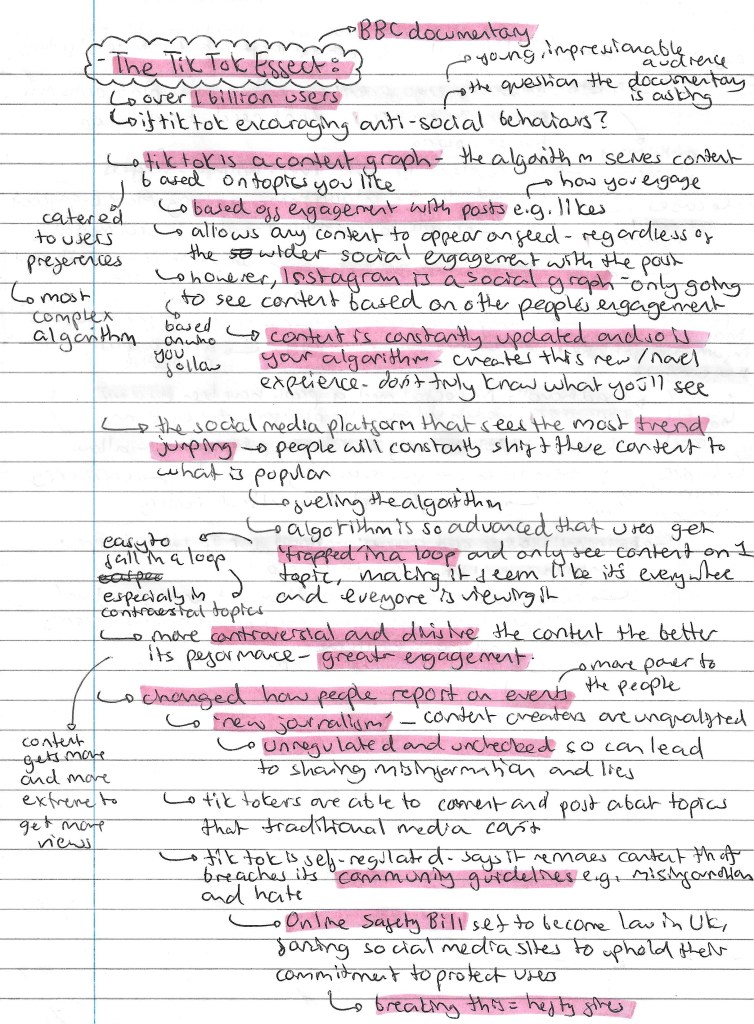 BBC documentary
- The TikTok Effect:
young, impressionable
audience
the question the documentary
is asking
↳ over 1 billion users
↳ if tiktok encouraging anti-social behaviors?
↳ tiktok is a content graph - the algorithm serves content
based on topics you like
how you engage
catered
to users
preferences
↳ most
complex
algorithm
↳ based off engagement with posts e.g. likes
↳ allows any content to appear on feed - regardless of
the so wider social engagement with the post
↳ however, Instagram is a social graph - only going
to see content based on other people's engagement
↳ based
on who
you
follow
↳ content is constantly updated and so is
your algorithm - creates this new/novel
experience - don't truly know what you'll see
↳ the social media platform that sees the most trend
jumping → people will constantly shift there content to
what is popular
↳ fueling the algorithm
↳ algorithm is so advanced that users get
'trapped in a loop' and only see content on 1
topic, making it seem like its everywhere
and everyone is viewing it
easy to
fall in a loop
especially in
controversial topics
↳ more controversial and divisive the content the better
its performance - greater engagement.
↳ changed how people report on events
more power to
the people
content
gets more
and more
extreme to
get more
views
↳ 'new journalism' - content creators are unqualified
↳ unregulated and unchecked so can lead
to sharing misinformation and lies
↳ tik tokers are able to comment and post about topics
that traditional media can't
↳ tiktok is self-regulated - says it removes content that
breaches its community guidelines e.g. misinformation
and hate
↳ Online Safety Bill set to become law in UK,
forcing social media sites to uphold their
commitment to protect users
↳ breaking this = hefty fines